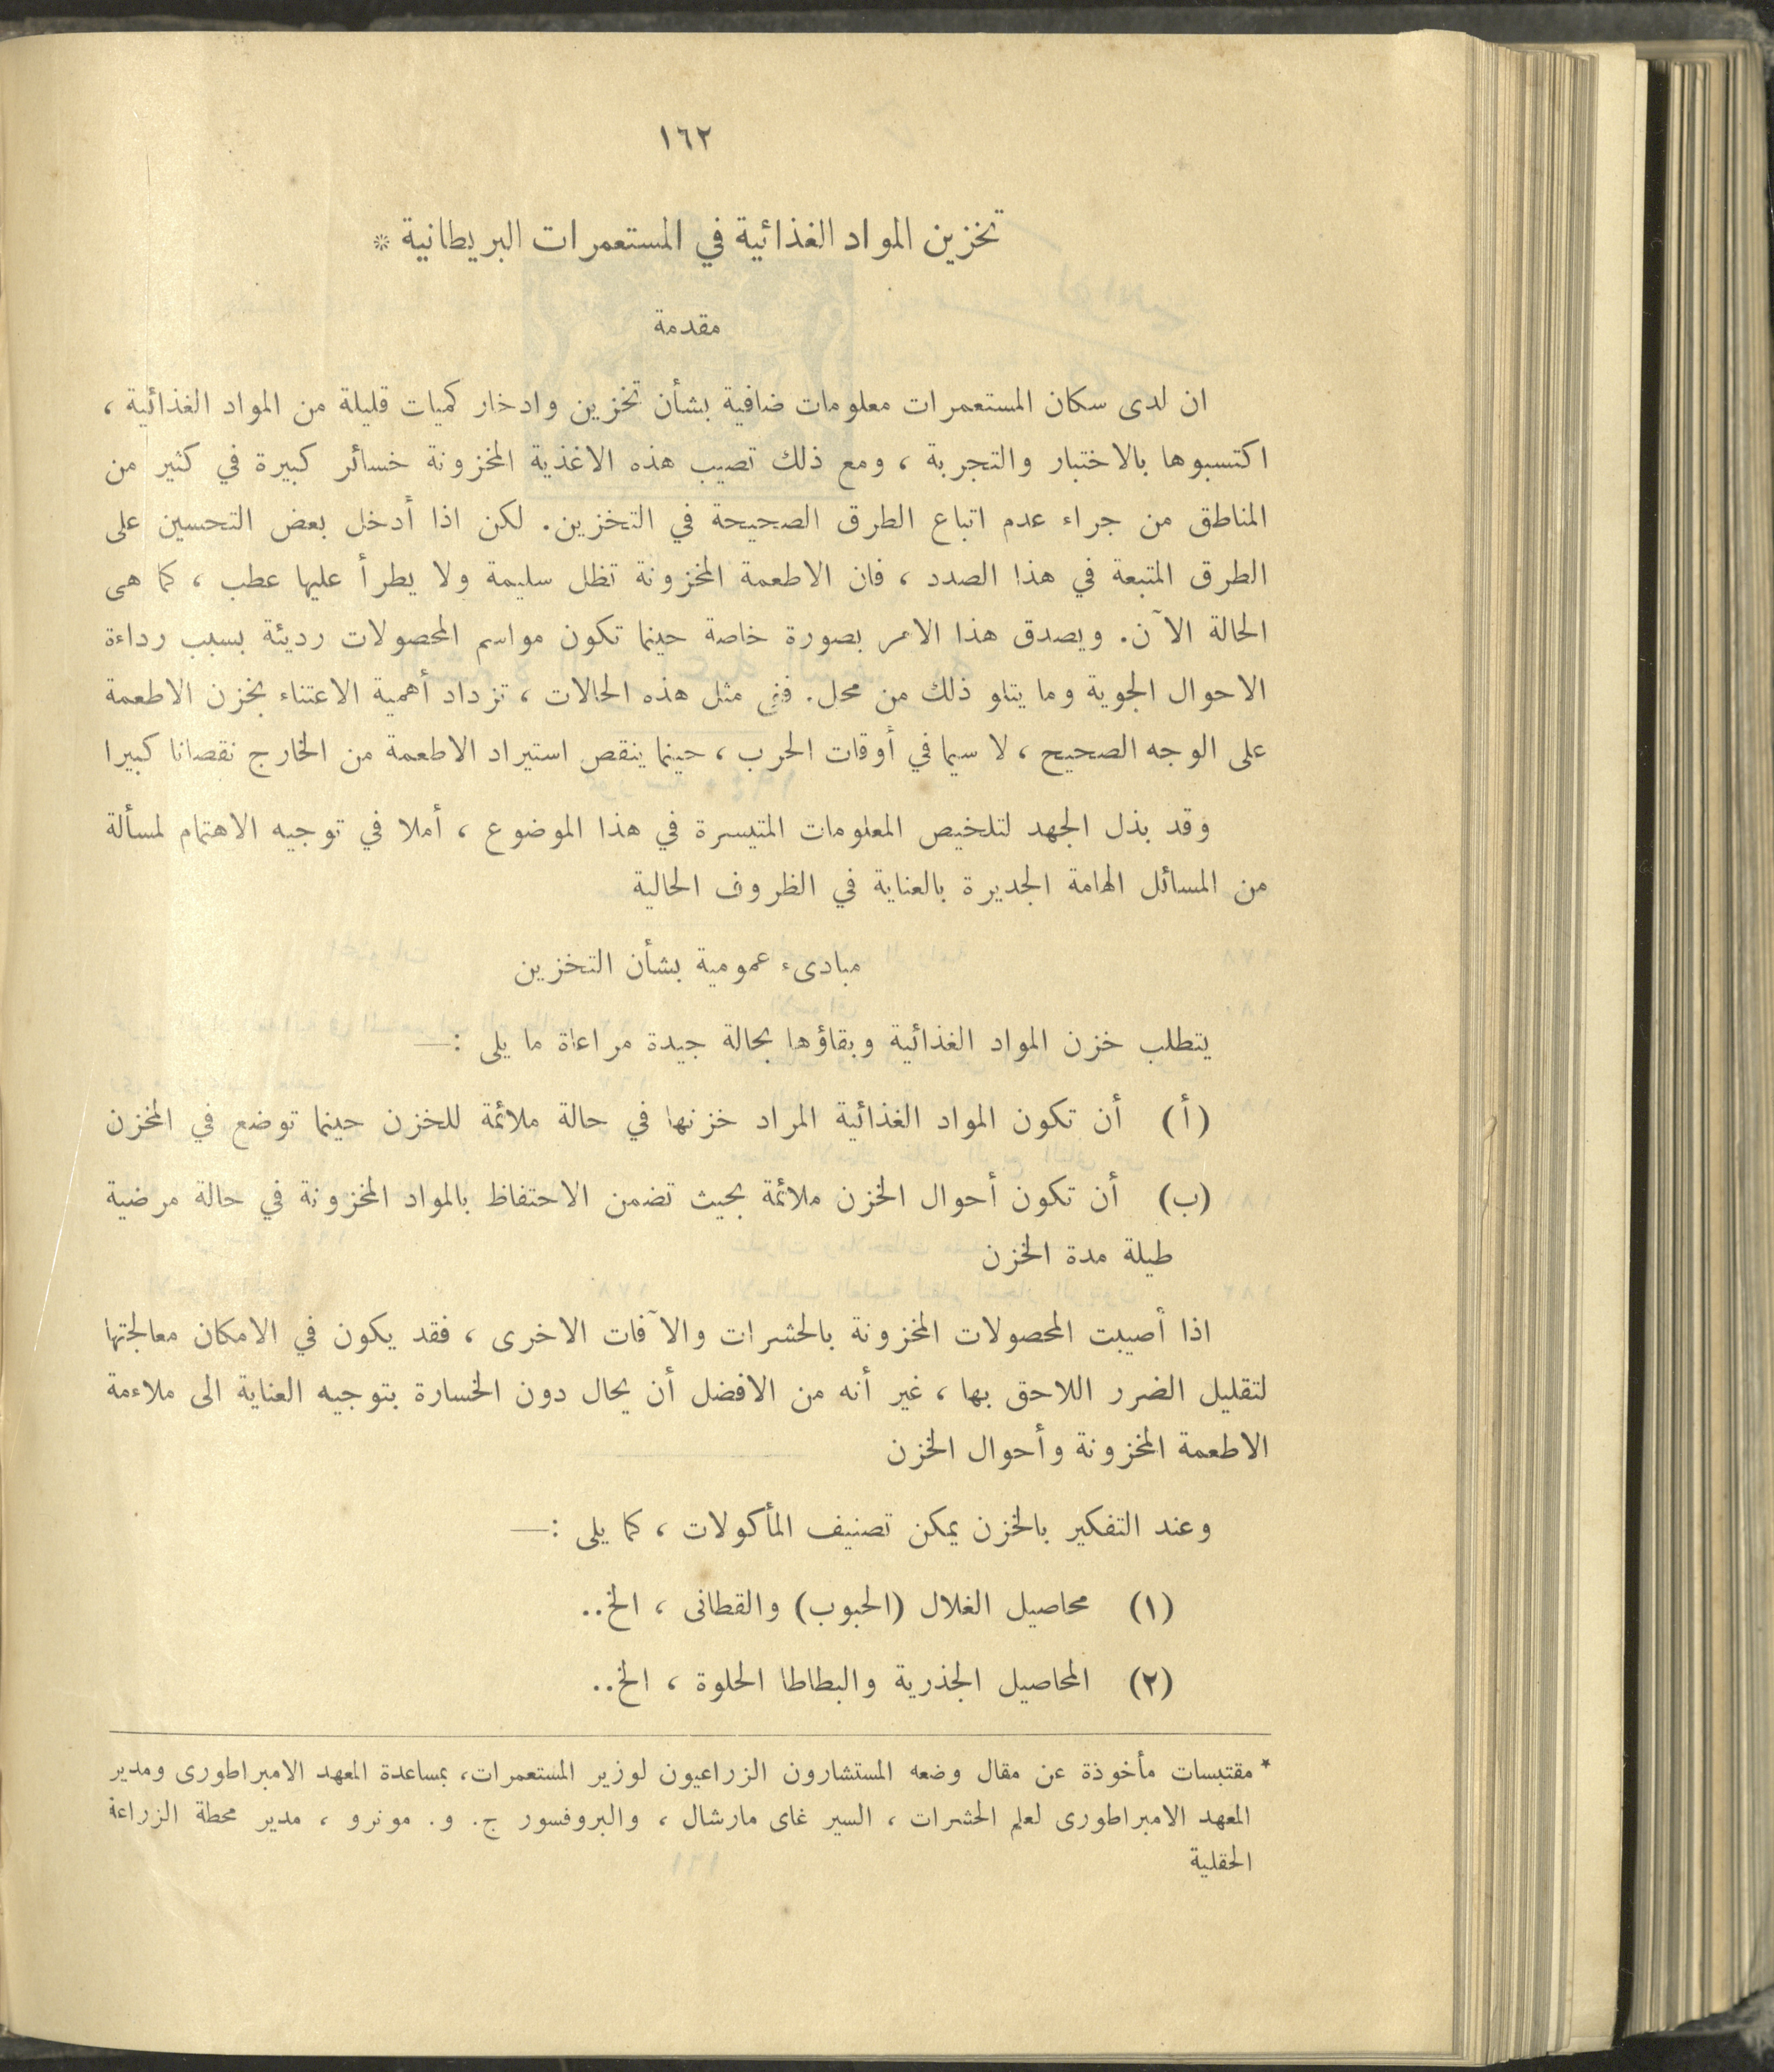 ١٦٢
تخزين المواد الغذائية في المستعمرات البريطانية *
مقدمة
ان لدى سكان المستعمرات معلومات ضافية بشأن تخزين وادخار كميات قليلة من المواد الغذائية ،
اكتسبوها بالاختبار والتجربة ، ومع ذلك تصيب هذه الاغذية المخزونة خسائر كبيرة في كثير من
المناطق من جراء عدم اتباع الطرق الصحيحة في التخزين. لكن اذا أدخل بعض التحسين على
الطرق المتبعة في هذا الصدد ، فان الاطعمة المخزونة تظل سليمة ولا يطرأ عليها عطب ، كما هى
الحالة الآن. ويصدق هذا الامر بصورة خاصة حينما تكون مواسم المحصولات رديئة بسبب رداءة
الاحوال الجوية وما يتلو ذلك من محل. ففى مثل هذه الحالات ، تزداد أهمية الاعتناء بخزن الاطعمة
على الوجه الصحيح ، لا سيما في أوقات الحرب ، حينما ينقص استيراد الاطعمة من الخارج نقصانا كبيرا
وقد بذل الجهد لتلخيص المعلومات المتيسرة في هذا الموضوع ، أملا في توجيه الاهتمام لمسألة
من المسائل الهامة الجديرة بالعناية في الظروف الحالية
مبادىء عمومية بشأن التخزين
يتطلب خزن المواد الغذائية وبقاؤها بحالة جيدة مراعاة ما يلى :—
(أ) أن تكون المواد الغذائية المراد خزنها في حالة ملائمة للخزن حينما توضع في المخزن
(ب) أن تكون أحوال الخزن ملائمة بحيث تضمن الاحتفاظ بالمواد المخزونة في حالة مرضية
طيلة مدة الخزن
اذا أصيبت المحصولات المخزونة بالحشرات والآفات الاخرى ، فقد يكون في الامكان معالجتها
لتقليل الضرر اللاحق بها ، غير أنه من الافضل أن يحال دون الخسارة بتوجيه العناية الى ملاءمة
الاطعمة المخزونة وأحوال الخزن
وعند التفكير بالخزن يمكن تصنيف المأكولات ، كما يلى :—
(١) محاصيل الغلال (الحبوب) والقطانى ، الخ..
(٢) المحاصيل الجذرية والبطاطا الحلوة ، الخ..
* مقتبسات مأخوذة عن مقال وضعه المستشارون الزراعيون لوزير المستعمرات، بمساعدة المعهد الامبراطورى ومدير
المعهد الامبراطورى لعلم الحشرات ، السير غاى مارشال ، والبروفسور ج. و. مونرو ، مدير محطة الزراعة
الحقلية